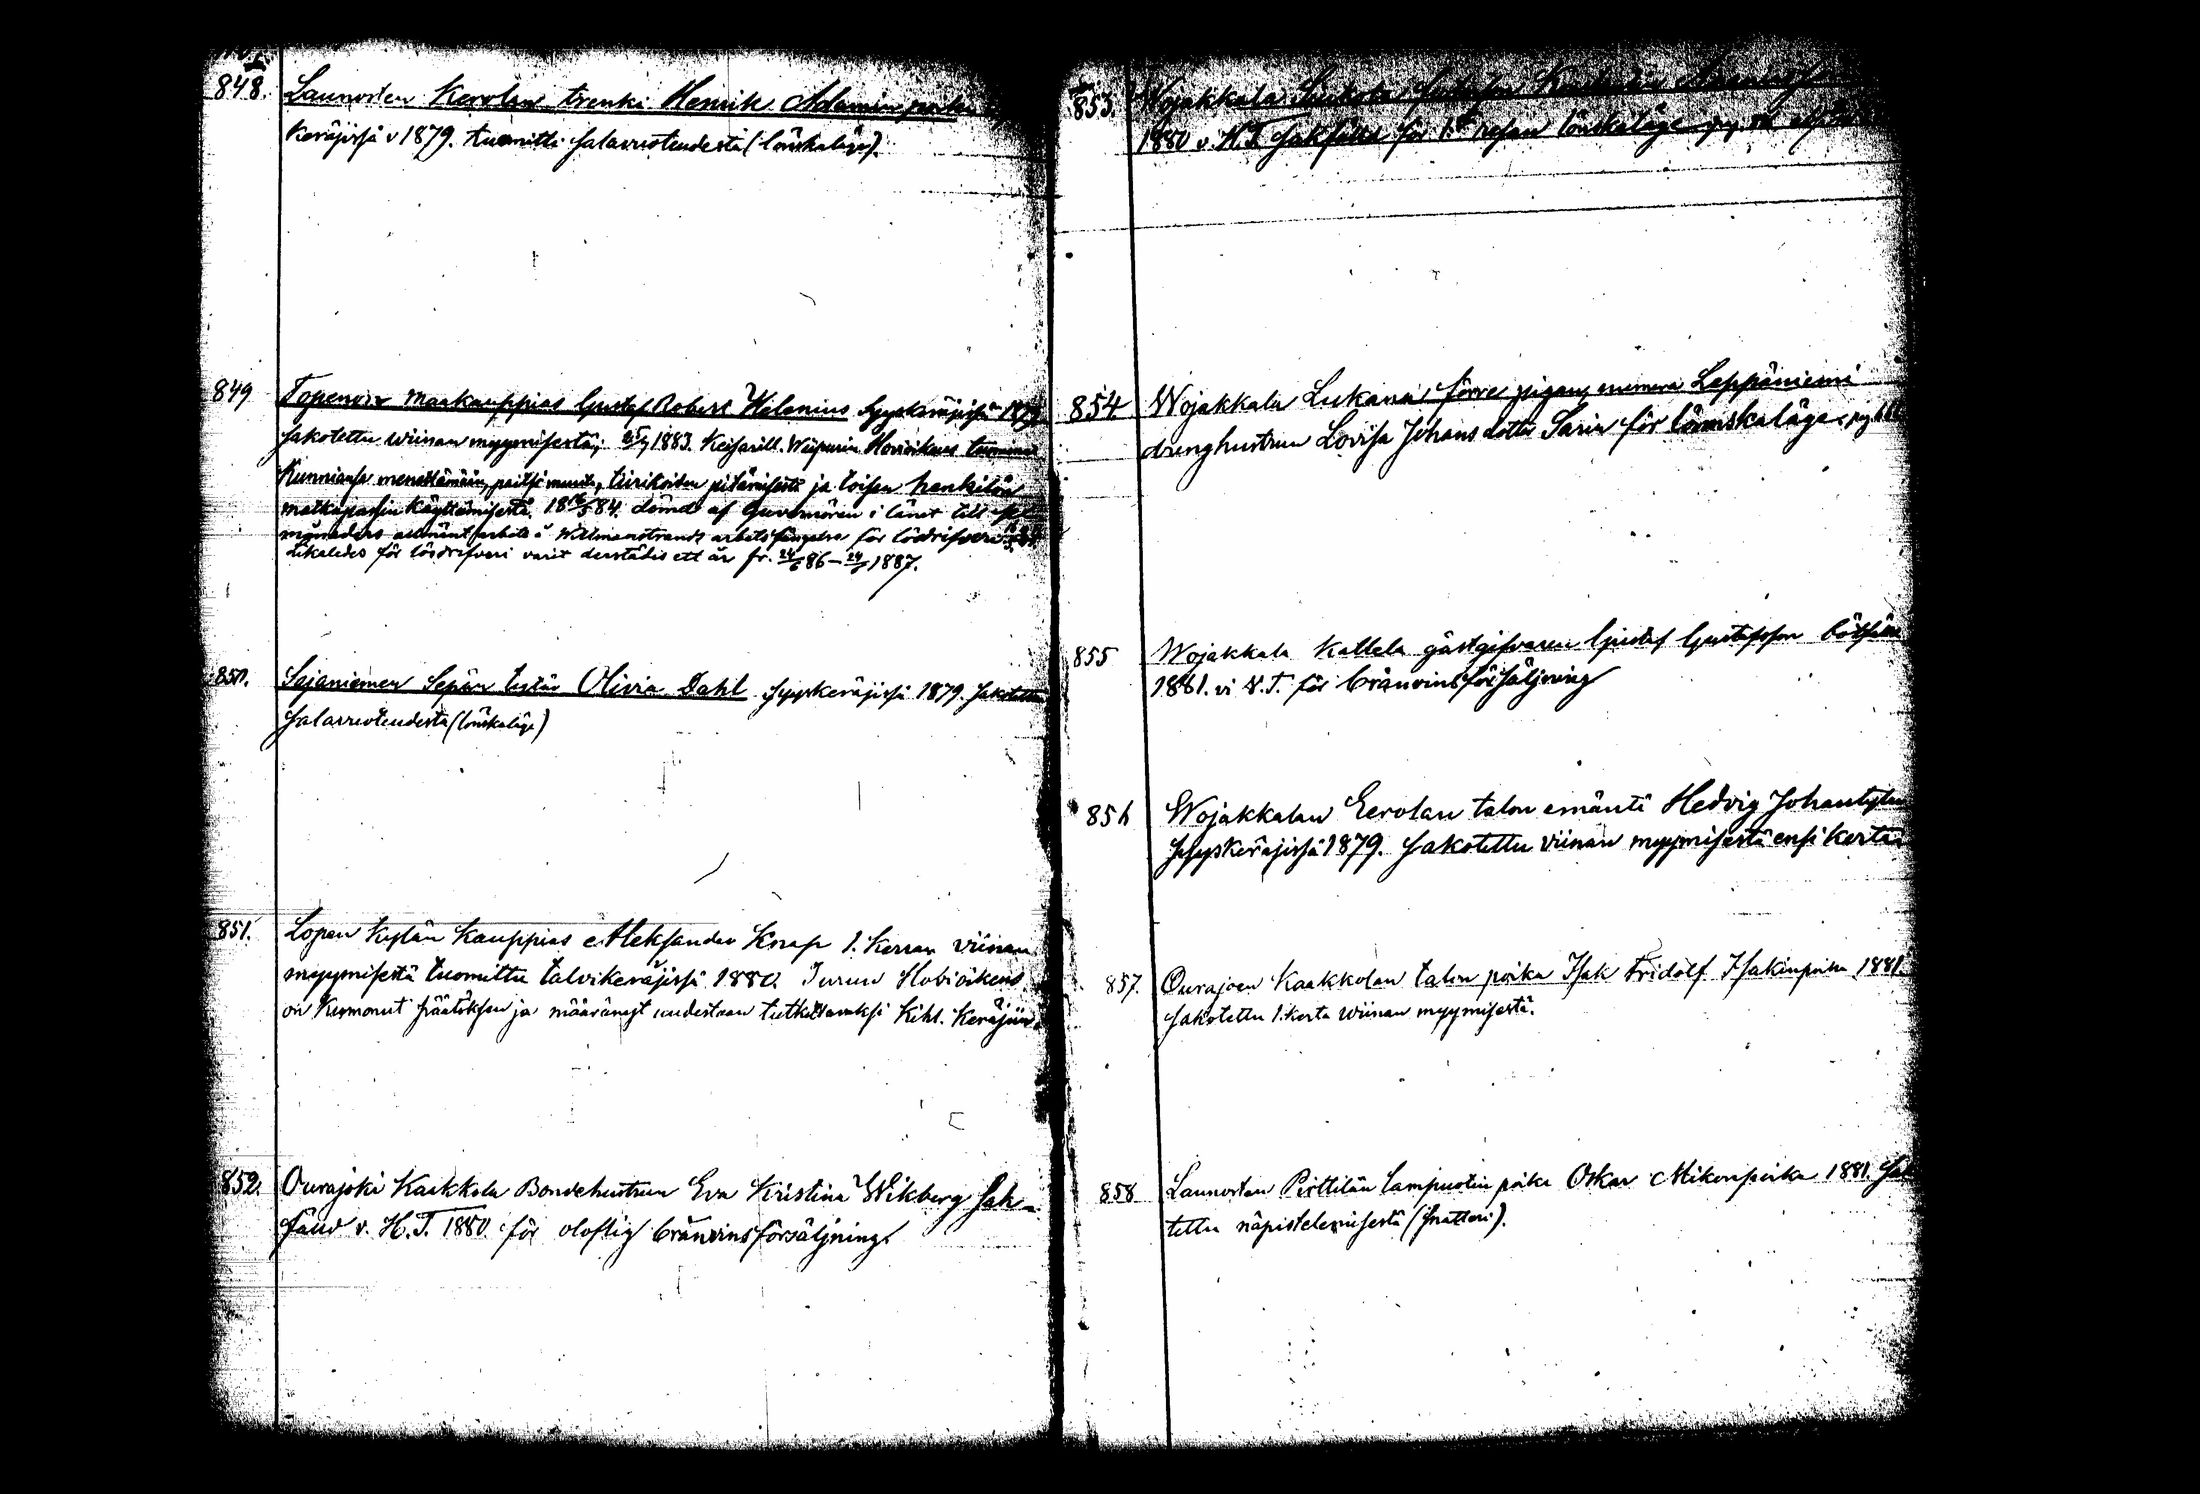 848. Launosten Kerolan trenki Henrik Adaminpoika
Keräjisjä v 1879. tuomittu salavuoteudesta (lönskaläge).
849 Topenon maakauppias Gustaf Robert Helenius syyskäräjisjä 1879
sakotettu wiinan myymisestä; 1883. Keisarill. Wiipurin Hovioikeus tuominnut
Kunniansa menettämään, paitsi muuta, tiirikoiden pitämisestä ja toisen henkilön
matkapassin käyttämisestä. 18 84. dömd af Guvernören i länet till
månaders allmänt arbete å Willmanstrands arbetsfängelse för lösdrifveri
Likaledes för lösdrifveri varit derstädes ett år fr. 24/6 86 – 24/6 1887.
850. Sajaniemen Sepän tytär Olivia Dahl syyskeräjisjä 1879. sakotettu
salavuoteudesta (lönskaläge)
851. Lopen kylän Kauppias Aleksander Knap 1. Kerran viinan
myymisestä tuomittu talvikeräjisjä 1880. Turun Hovioikeus
on Kumonut päätöksen ja määrännyt uudestaan tutkittavaksi Kihl. Keräjiin.
852. Ourajoki Kaakkola Bondehustrun Eva Kristina Wikberg Sak-
fäld v. H.T. 1880 för oloflig bränvinsförsäljning.
853. Wojakkala
1880 v. H.T. sakfälld för 1:a resan lönskaläge
854 Wojakkala Lukana förre pigan, numera Leppäniemi
drenghustrun Lovisa Johansdotter Sarin för lönnskaläge
855 Wojakkala Kallela gästgifvaren Gustaf Gustafsson bötfäld
1881. vi V.T. för bränvinsförsäljning
856 Wojakkalan Eerolan talon emäntä Hedvig Johantytär
syyskeräjisjä 1879. sakotettu viinan myymisestä ensi kertaa
857. Ourajoen Kaakkolan talon poika Isak Fridolf Isakinpoika 1881.
sakotettu 1. kerta wiinan myymisestä.
858 Launosten Pirttilän lampuotin poika Oskar Mikonpoika 1881. sako
tettu näpistelemisestä (snatteri).